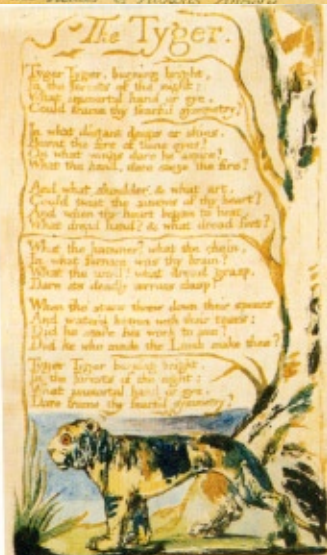 The Tyger.
Tyger Tyger, burning bright,
In the forests of the night;
What immortal hand or eye,
Could frame thy fearful symmetry?
In what distant deeps or skies,
Burnt the fire of thine eyes?
On what wings dare he aspire?
What the hand, dare seize the fire?
And what shoulder, & what art,
Could twist the sinews of thy heart?
And when thy heart began to beat,
What dread hand? & what dread feet?
What the hammer? what the chain,
In what furnace was thy brain?
What the anvil? what dread grasp,
Dare its deadly terrors clasp?
When the stars threw down their spears
And water'd heaven with their tears:
Did he smile his work to see?
Did he who made the Lamb make thee?
Tyger Tyger burning bright,
In the forests of the night:
What immortal hand or eye,
Dare frame thy fearful symmetry?